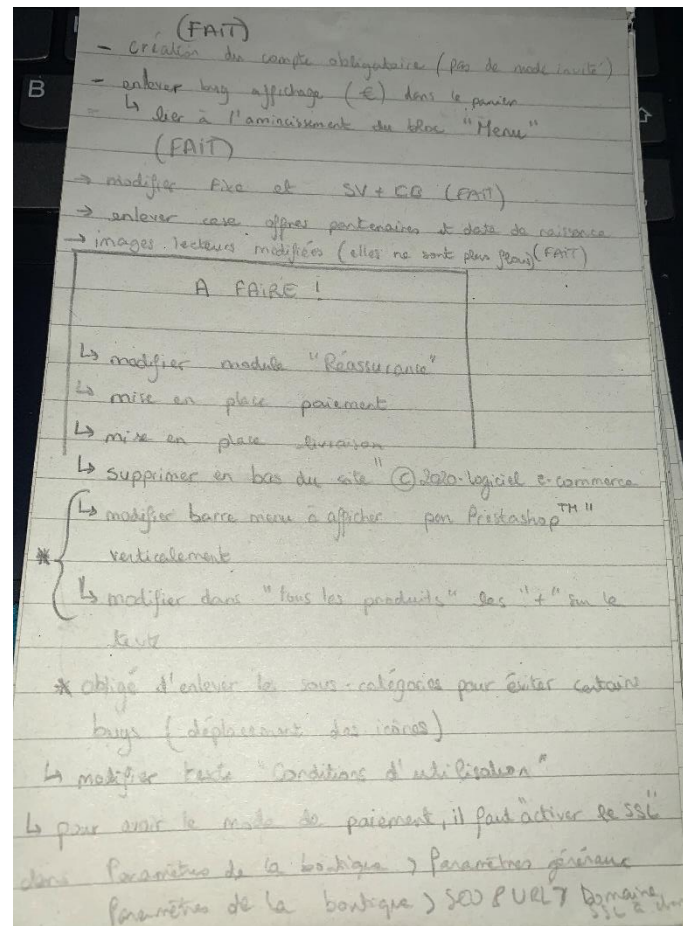 (FAIT)
- création du compte obligatoire (pas de mode invité)
- enlever bug affichage (€) dans le panier
↳ lier à l'amincissement du bloc "Menu"
(FAIT)
→ modifier Fixe et SV + CB (FAIT)
→ enlever case offres partenaires et date de naissance
→ images lecteurs modifiées (elles ne sont plus floues) (FAIT)
A FAIRE !
↳ modifier module "Réassurance"
↳ mise en place paiement
↳ mise en place livraison
↳ supprimer en bas du site "© 2020-logiciel e-commerce
↳ modifier barre menu à afficher par Prestashop™"
verticalement
↳ modifier dans "tous les produits" les "+" sur le
texte
* obligé d'enlever les sous-catégories pour éviter certains
bugs (déplacement des icônes)
↳ modifier texte "Conditions d'utilisation"
↳ pour avoir le mode de paiement, il faut "activer le SSL"
dans Paramètres de la boutique > Paramètres généraux
Paramètres de la boutique > SEO & URL > Domaine
SSL
B